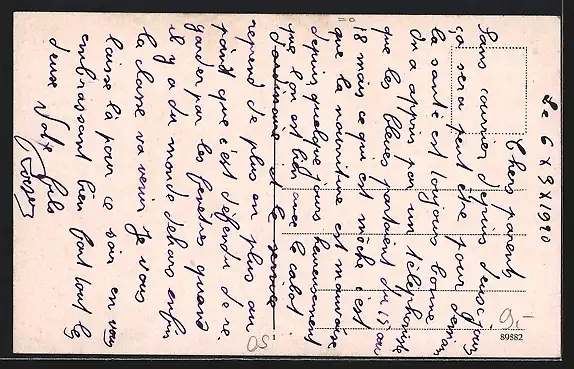 Le 6 X 9 X 1920
Chers parents
Sans courrier depuis deux jours
ça sera peut être pour demain
la santé est toujours bonne
On a appris par un téléphoniste
que les bleues partaient du 15 au
18 mais ce qui est moche c'est
que la nourriture est mauvaise
depuis quelque jours heureusement
que l'on est bien avec le cabot
d'ordinaire et le service
reprend de plus en plus au
point que c'est défendu de re
garder par les fenêtres quand
il y a du monde dehors enfin
la classe va venir Je vous
laisse là pour ce soir en vous
embrassant bien fort tout les
deux Votre fils
Roger
9,-
OS
1
89882